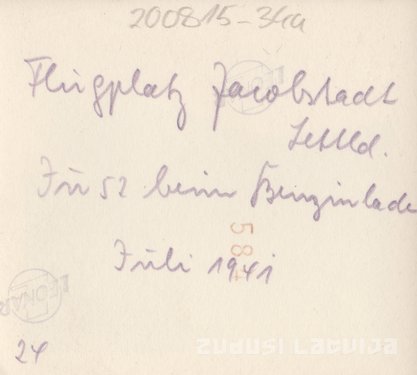 200815-34a
Flugplatz Jacobstadt
Lettld.
Ju 52 beim Benzinlade
58
Juli 1941
LEONAR
24
ZUDUSI LATVIJA